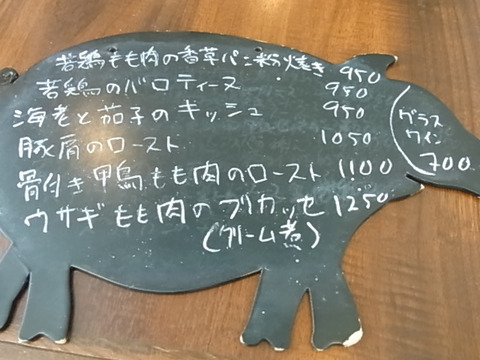 若鶏もも肉の香草パン粉焼き 950
若鶏のバロティーヌ 950
海老と茄子のキッシュ 950
豚肩のロースト 1050
骨付き鴨もも肉のロースト 1100
ウサギもも肉のフリカッセ 1250
(クリーム煮)
グラス
ワイン
700